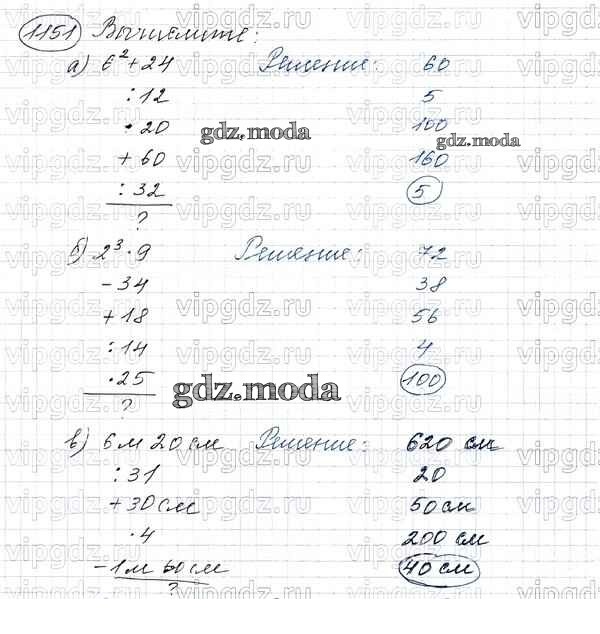 1151 Вычислите:
а) 6² + 24 Решение: 60
: 12 5
· 20 100
+ 60 160
: 32 5
?
б) 2³ · 9 Решение: 72
- 34 38
+ 18 56
: 14 4
· 25 100
?
в) 6 м 20 см Решение: 620 см
: 31 20
+ 30 см 50 см
· 4 200 см
- 1 м 60 см 40 см
?
gdz.moda
gdz.moda
gdz.moda
vipgdz.ru